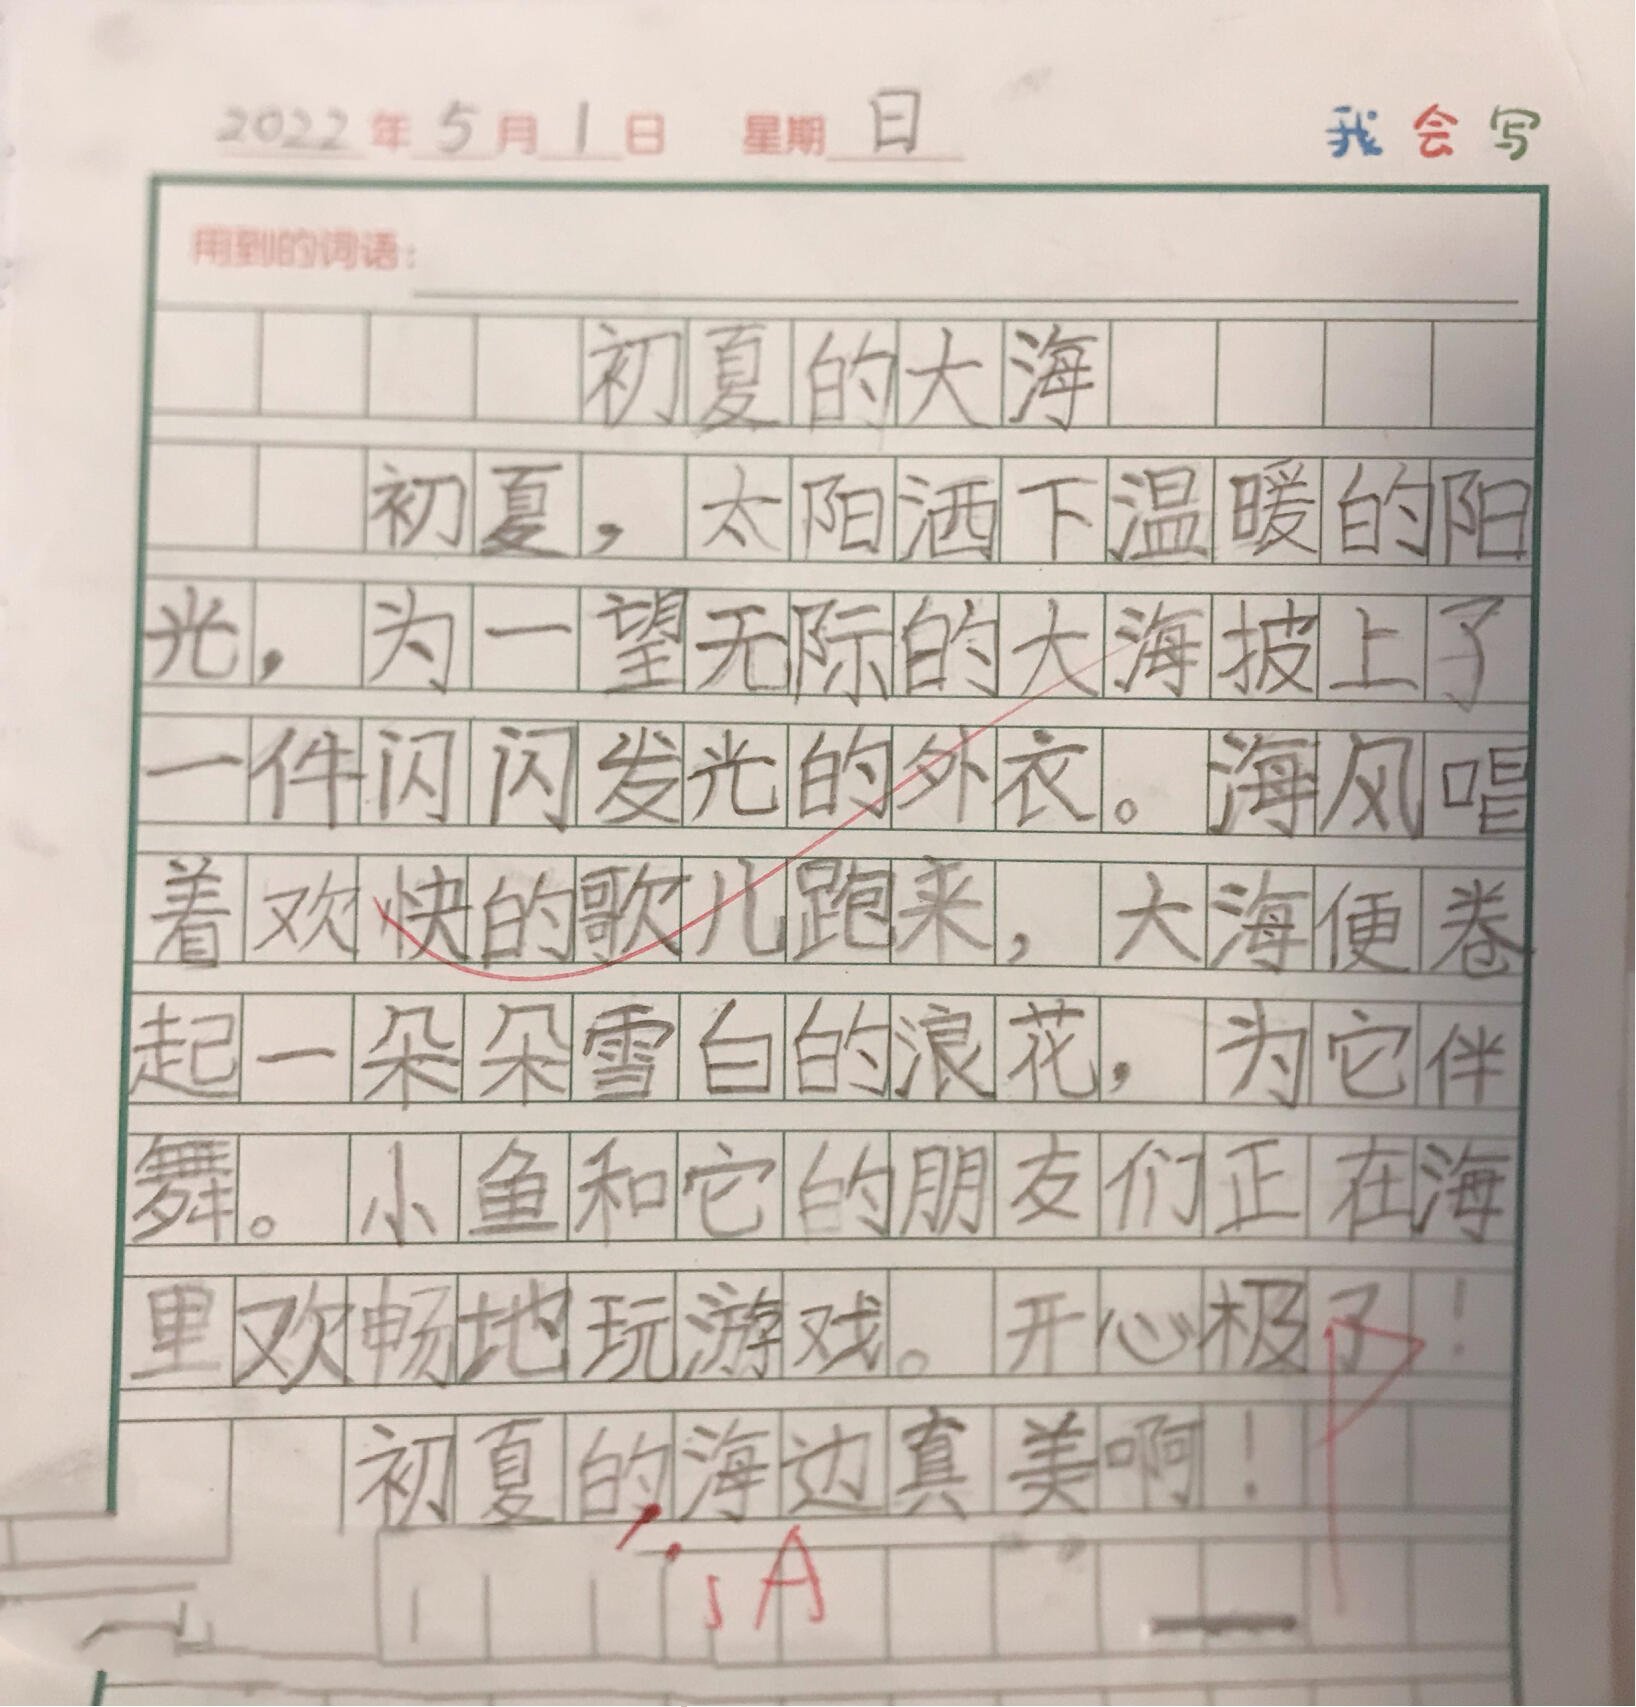 2022年5月1日 星期日 我会写
用到的词语:
初夏的大海
初夏，太阳洒下温暖的阳
光，为一望无际的大海披上了
一件闪闪发光的外衣。海风唱
着欢快的歌儿跑来，大海便卷
起一朵朵雪白的浪花，为它伴
舞。小鱼和它的朋友们正在海
里欢畅地玩游戏。开心极了！
初夏的海边真美啊！
A